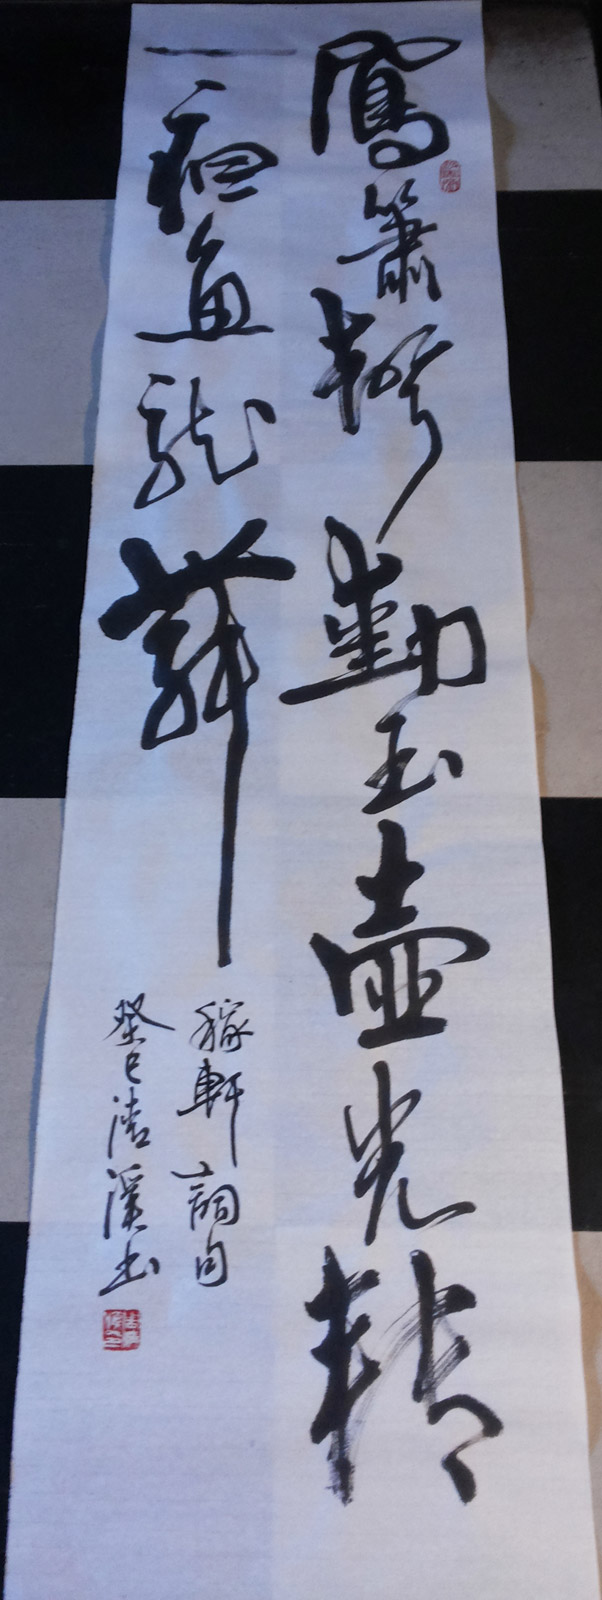 鳳簫聲動玉壺光轉
一夜魚龍舞
稼軒詞句
癸巳清溪书